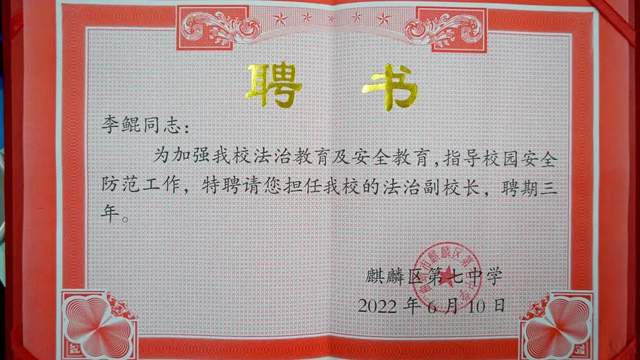 聘书
李鲲同志：
为加强我校法治教育及安全教育，指导校园安全
防范工作，特聘请您担任我校的法治副校长，聘期三
年。
麒麟区第七中学
2022年6月10日